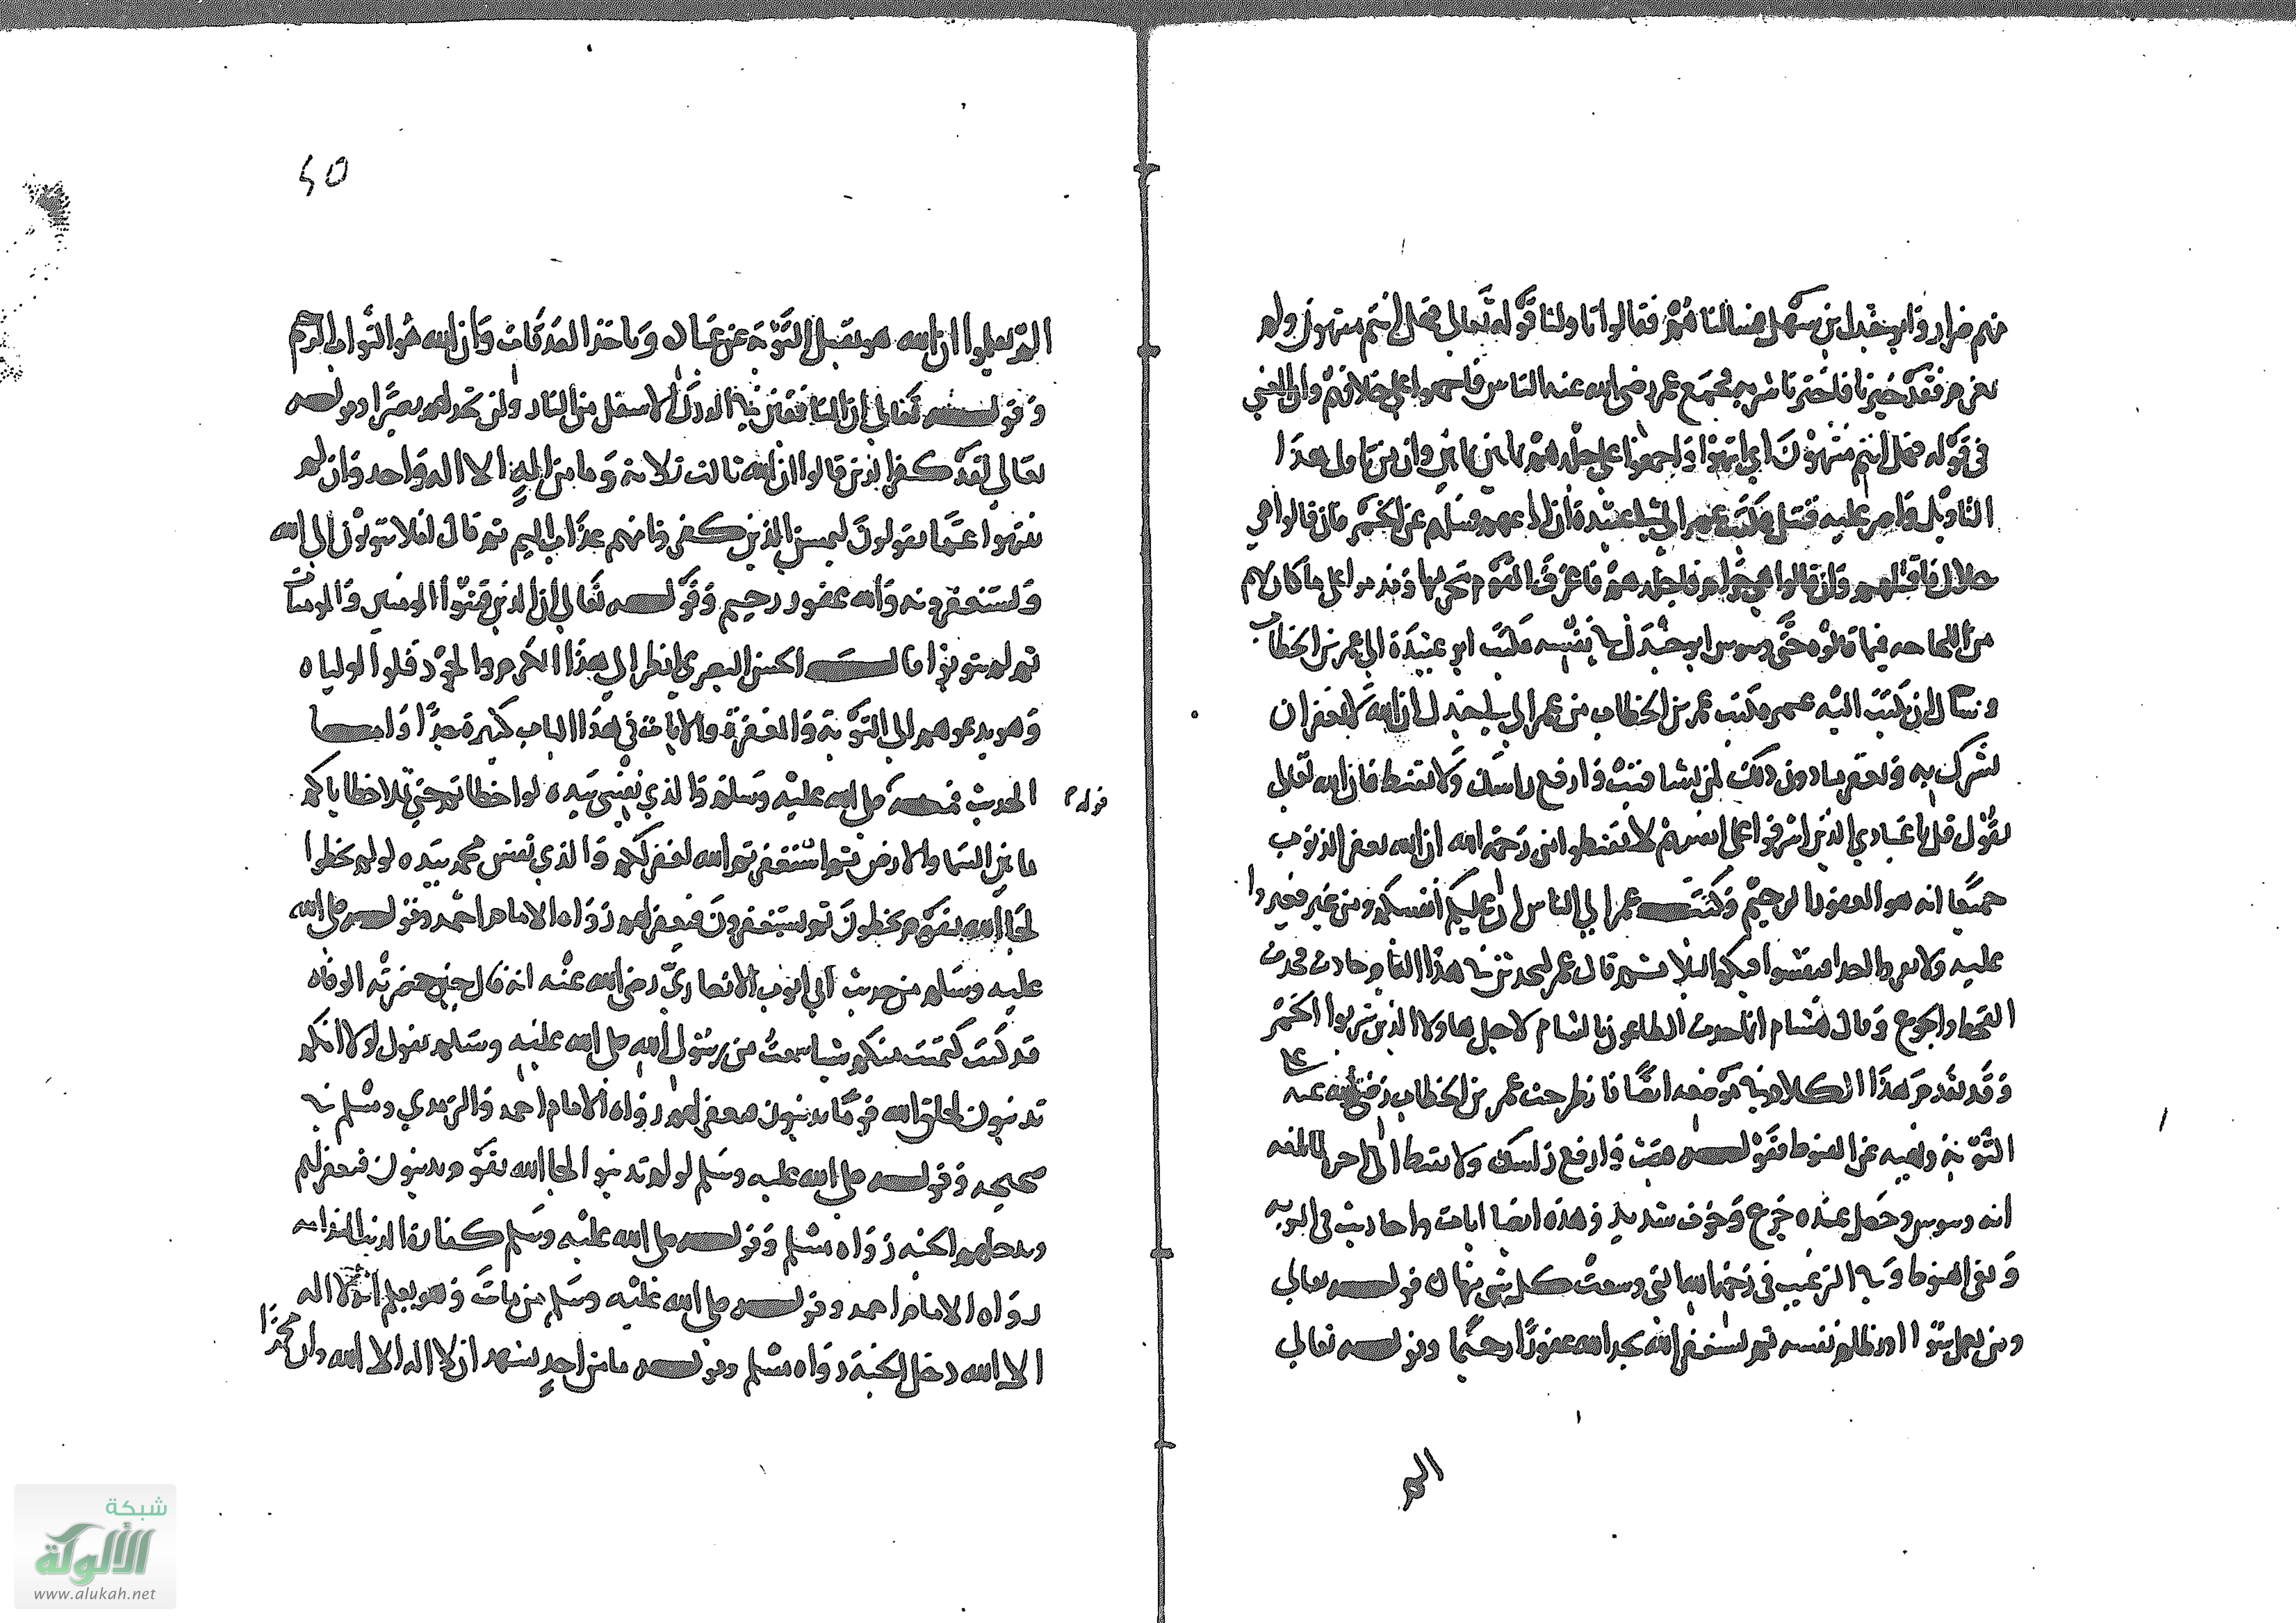 منهم ضرار وابو جندل بن سهل فسالناهم فقالوا تاولنا قوله تعالى فهل انتم منتهون ولم
يعزم فقد خيرنا فاخترنا شربه فجمع عمر رضي الله عنه الناس فاجمعوا على خلافهم وان المعني
في قوله فهل انتم منتهون اي انتهوا واجمعوا على جلدهم ثمانين ثمانين وان من تاول هذا
التاويل واصر عليه قتل فكتب عمر الى ابي عبيدة ان ادعهم وسلهم عن الخمر فان قالوا هي
حلال فاقتلهم وان قالوا هي حرام فاجلدهم فاعترف القوم بتحريمها وندموا على ما كان منهم
من اللجاجه فيما قالوه حتى وسوس ابو جندل في نفسه فكتب ابو عبيدة الى عمر بن الخطاب
وسال ان يكتب اليه عمر فكتب عمر بن الخطاب من عمر الى ابي جندل ان الله لا يغفر ان
يشرك به ويغفر ما دون ذلك لمن يشا فتب وارفع راسك ولا تقنط فان الله تعالى
يقول قل يا عبادي الذين اسرفوا على انفسهم لا تقنطوا من رحمة الله ان الله يغفر الذنوب
جميعا انه هو الغفور الرحيم وكتب عمر الى الناس ان عليكم انفسكم ومن غير فغيروا
عليه ولا تعيروا احدا فيفشوا فيكم البلا ثم قال عمر ليحدثن في هذا العام حادث فحدث
القحط والجوع وقال هشام انما حدث الطاعون بالشام لاجل هاولا الذين شربوا الخمر
وقد تقدم هذا الكلام في موضعه ايضا فانظر حث عمر بن الخطاب رضي الله عنه على
التوبة ونهيه عن القنوط فقوله فتب وارفع راسك ولا تقنط الى اخره لما بلغه
انه وسوس وحصل عنده جزع وخوف شديد وهذه ايضا ايات واحاديث في التوبه
ونفي القنوط وفي الترغيب في رحمة الله التي وسعت كل شي فمنها قوله تعالى
ومن يعمل سوا او يظلم نفسه ثم يستغفر الله يجد الله غفورا رحيما وقوله تعالى
الم
٤٥
الم يعلموا ان الله هو يقبل التوبة عن عباده وياخذ الصدقات وان الله هو التواب الرحيم
وقوله تعالى ان المنافقين في الدرك الاسفل من النار ولن تجد لهم نصيرا وقوله
تعالى لقد كفر الذين قالوا ان الله ثالث ثلاثة وما من اله الا اله واحد وان لم
ينتهوا عما يقولون ليمسن الذين كفروا منهم عذاب اليم ثم قال افلا يتوبون الى الله
ويستغفرونه والله غفور رحيم وقوله تعالى ان الذين فتنوا المومنين والمومنات
ثم لم يتوبوا قال الحسن البصري انظر الى هذا الكرم والجود قتلوا اولياه
وهو يدعوهم الى التوبة والمغفرة والايات في هذا الباب كثيرة جدا واما
الحديث فمنه قوله صلى الله عليه وسلم والذي نفسي بيده لو اخطاتم حتى تملا خطاياكم
ما بين السما والارض ثم استغفرتم الله لغفر لكم والذي نفس محمد بيده لو لم تخطوا
لجا الله بقوم يخطون ثم يستغفرون فيغفر لهم رواه الامام احمد وقوله صلى الله
عليه وسلم من حديث ابي ايوب الانصاري رضي الله عنه انه قال حين حضرته الوفاه
قد كنت كتمت منكم شيا سمعت من رسول الله صلى الله عليه وسلم يقول لولا انكم
تذنبون لخلق الله قوما يذنبون فيغفر لهم رواه الامام احمد والترمذي ومسلم في
صحيحه وقوله صلى الله عليه وسلم لو لم تذنبوا لجا الله بقوم يذنبون فيغفر لهم
ويدخلهم الجنه رواه مسلم وقوله صلى الله عليه وسلم كفارة الذنب الندامه
رواه الامام احمد وقوله صلى الله عليه وسلم من مات وهو يعلم انه لا اله
الا الله دخل الجنة رواه مسلم وقوله ما من احد يشهد ان لا اله الا الله وان محمدا
شبكة
الألوكة
www.alukah.net